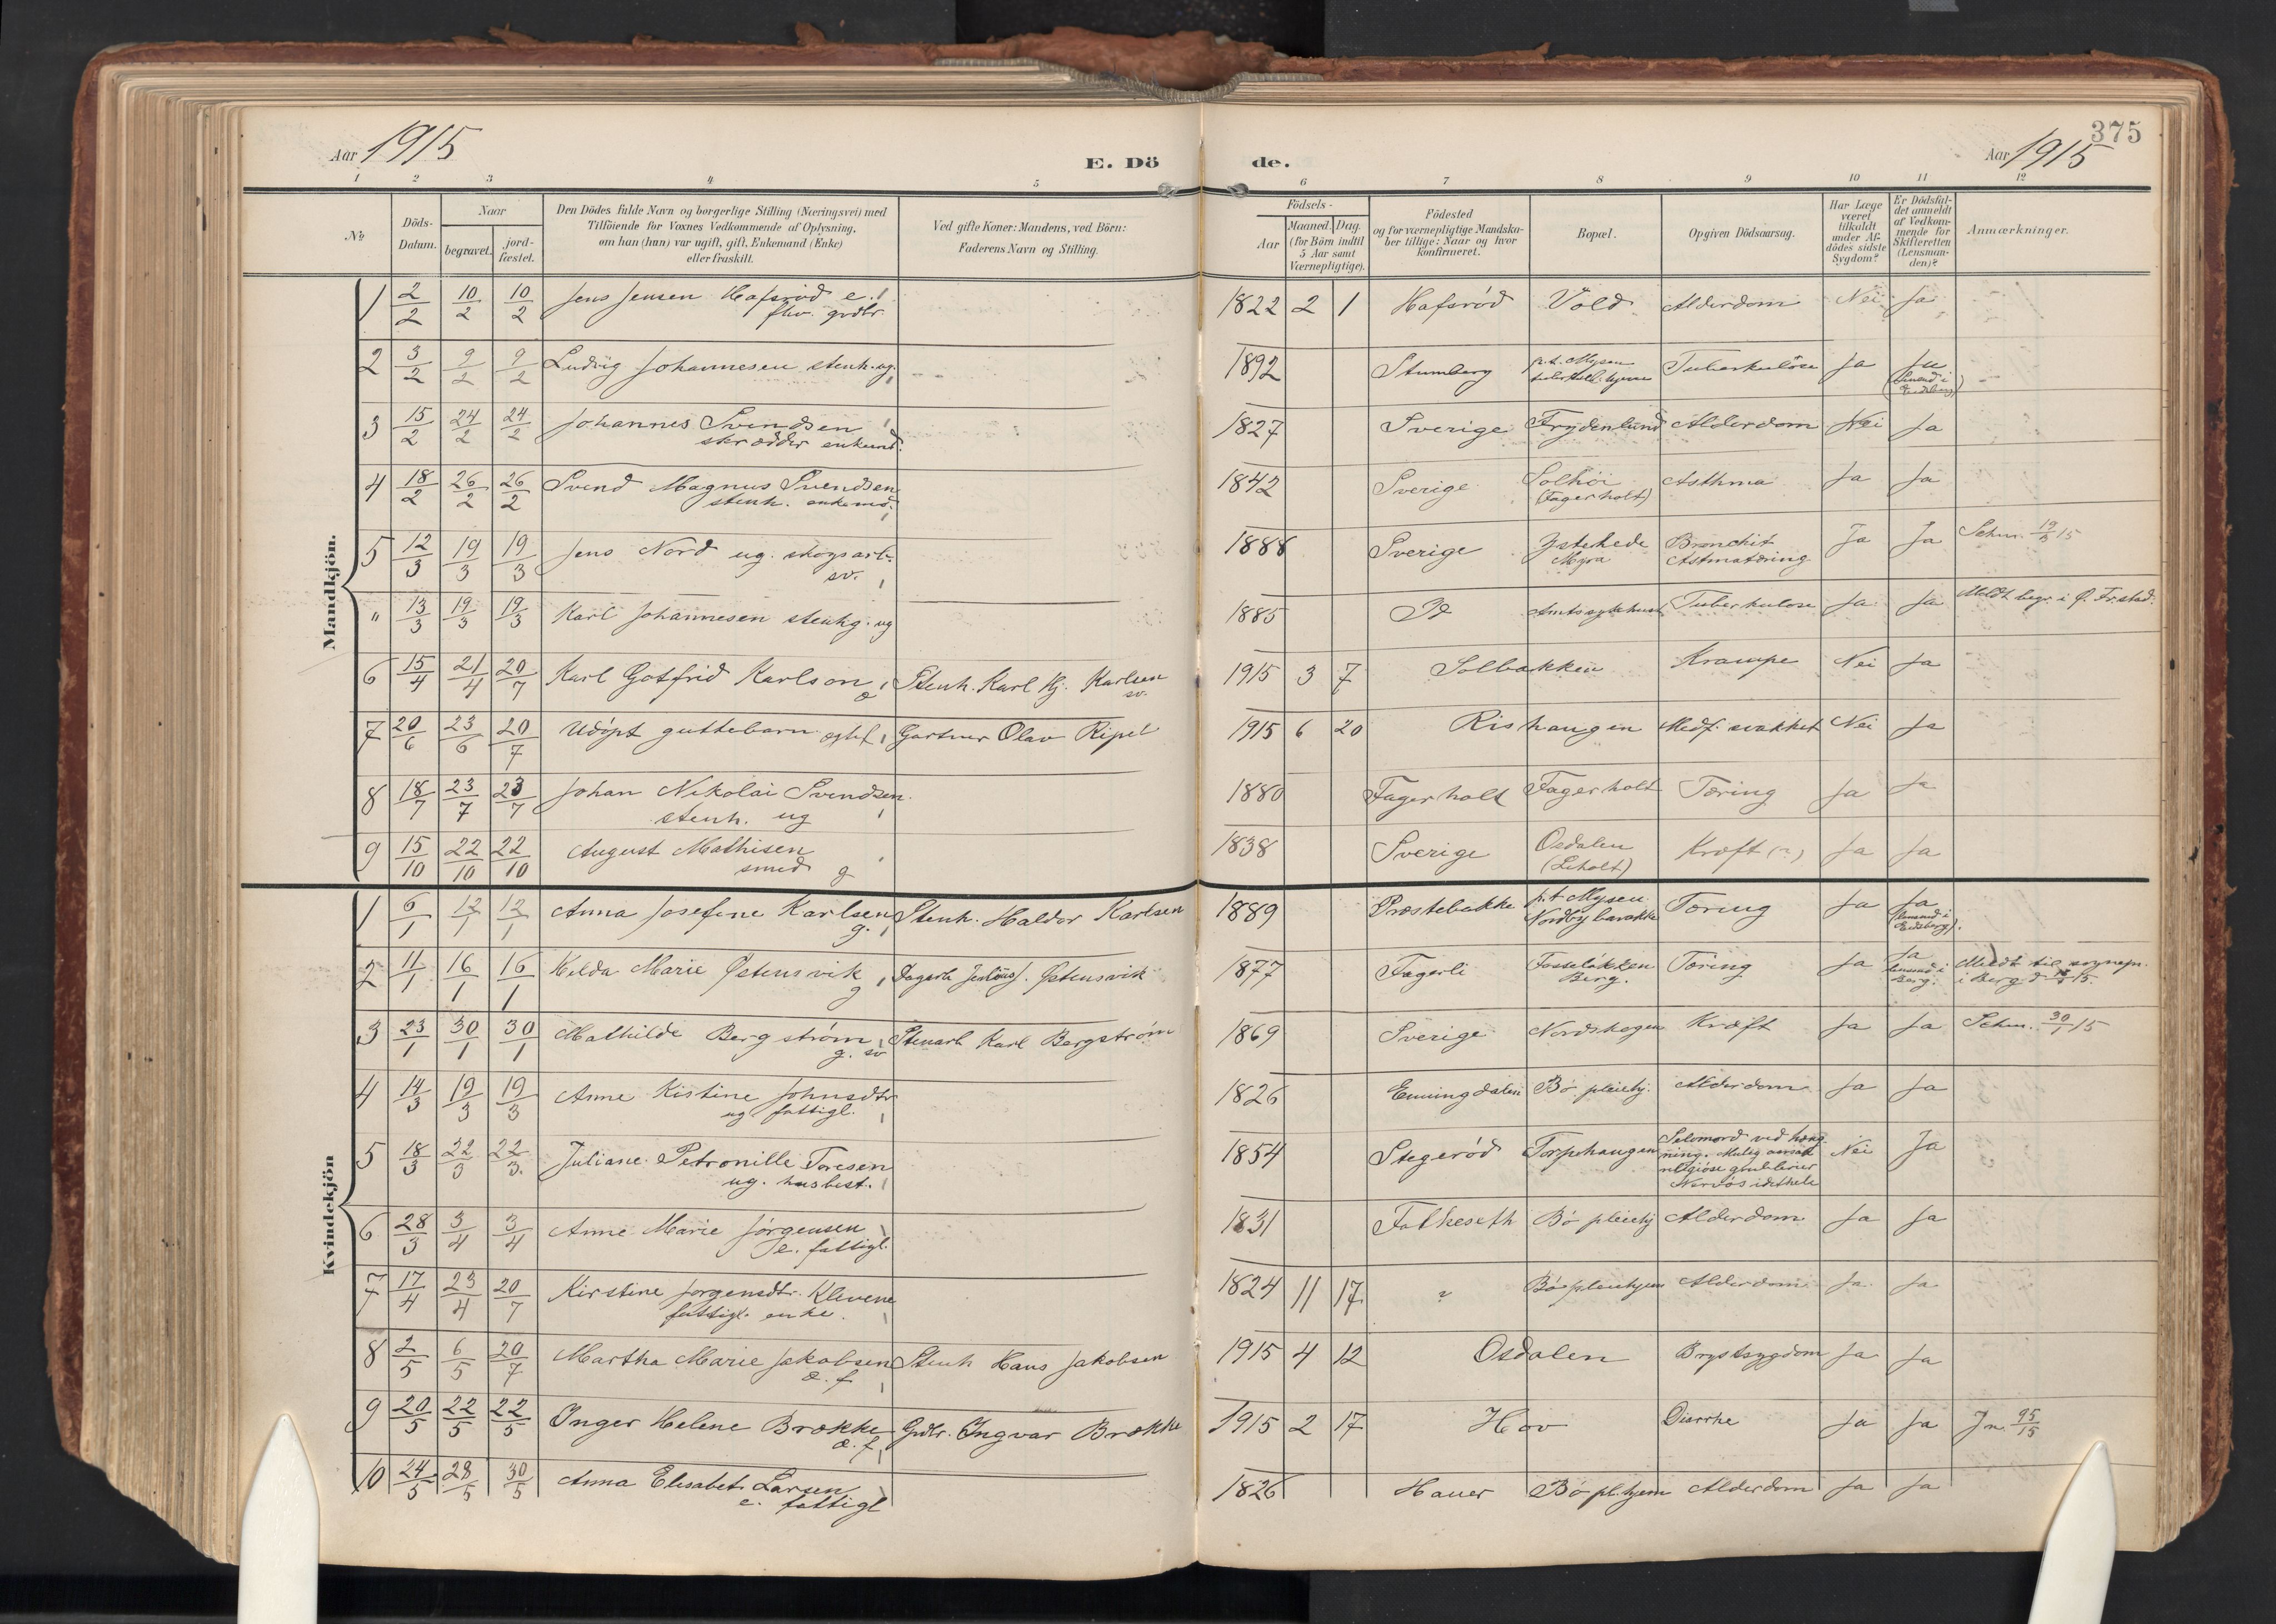 375
Aar 1915
E. Dö de.
Aar 1915
1 2 3 4 5 6 7 8 9 10 11 12
No
Döds-Datum.
Naar
begravet.
jord-fæstet.
Den Dödes fulde Navn og borgerlige Stilling (Næringsvei) med
Tilföiende for Voxnes Vedkommende af Oplysning,
om han (hun) var ugift, gift, Enkemand (Enke)
eller fraskilt.
Ved gifte Koner: Mandens, ved Börn:
Faderens Navn og Stilling.
Födsels-
Aar
Maaned.
Dag.
(for Börn indtil
5 Aar samt
Værnepligtige).
Födested
og for værnepligtige Mandska-
ber tillige: Naar og hvor
Konfirmeret.
Bopæl.
Opgiven Dödsaarsag.
Har Læge
været
tilkaldt
under Af-
dödes sidste
Sygdom?
Er Dödsfal-
det anmeldt
af Vedkom-
mende for
Skifteretten
(Lensman-
den)?
Anmærkninger.
Mandkjön.
1 2/2 10/2 10/2 Jens Jensen Hafsrød e. 1822 2 1 Hafsrød Vold Alderdom Nei Ja
fhv. grdbr.
2 3/2 9/2 9/2 Ludvig Johannesen stenh. ug. 1892 Stumberg p.t. Mysen Tuberkulose Ja Ja
tuberkul. hjem
3 15/2 24/2 24/2 Johannes Svendsen 1827 Sverige Frydenlund Alderdom Nei Ja
skrædder enkemd.
4 18/2 26/2 26/2 Svend Magnus Svendsen 1842 Sverige Solhöi Asthma Ja Ja
stenh. enkemd. (Fagerholt)
5 12/3 19/3 19/3 Jens Nord ug. skogsarb. 1888 Sverige Ystehede Bronchit Ja Ja Schm. 19/3 15
sv. Myra Astmatæring
" 13/3 19/3 19/3 Karl Johannesen stenhg. ug 1885 Amtssykehuset Tuberkulose Ja Ja Meldt begr. i Ø. Fr.stad.
6 15/4 21/4 20/7 Karl Gotfrid Karlson Stenh. Karl Hj. Karlsen 1915 3 7 Solbakken Krampe Nei Ja
æ sv.
7 20/6 23/6 20/7 Udøpt guttebarn ægtef. Gartner Olav Ripel 1915 6 20 Rishaugen Medf. svakhet Nei Ja
8 18/7 23/7 23/7 Johan Nikolai Svendsen 1880 Fagerholt Fagerholt Tæring Ja Ja
stenh. ug
9 15/10 22/10 22/10 August Mathisen 1838 Sverige Osdalen Kræft (?) Ja Ja
smed g (Liholt)
Kvindekjön
1 6/1 12/1 12/1 Anna Josefine Karlsen Stenh. Haldor Karlsen 1889 Prestebakke p.t Mysen Tæring Ja Ja
g. Nordby barakke (lensmd i
Eidsberg).
2 11/1 16/1 16/1 Helda Marie Østensvik Dagarb. J. Østensvik 1877 Fagerli Fosseløkken Tæring Ja Ja Meldt til sognepr.
g Berg. lensmd i Berg. i Berg d 15.
3 23/1 30/1 30/1 Mathilde Bergstrøm Stenarb Karl Bergstrøm 1869 Sverige Nordskogen Kræft Ja Ja Schm. 30/1 15
g. sv
4 14/3 19/3 19/3 Anne Kistine Johnsdtr 1826 Enningdalen Bø pleiehj. Alderdom Ja Ja
ug fattigl.
5 18/3 22/3 22/3. Juliane Petronille Toresen 1854 Stegerød Torpshaugen Selvmord ved hæng- Nei Ja
ug. husbest. ning. Mulig aarsak
religiøse grublerier
Nervøs idethele
6 28/3 3/4 3/4 Anne Marie Jørgensen 1831 Folkeseth Bø pleiehj Alderdom Ja Ja
e. fattigl.
7 17/4 23/4 20/7 Kirstine Jorgensdtr. Klevene 1824 11 17 ? Bø pleiehjem Alderdom Ja Ja
fattigl. enke.
8 2/5 6/5 20/7 Martha Marie Jakobsen Stenh Hans Jakobsen 1915 4 12 Osdalen Brystsygdom Ja Ja
æ. f
9 20/5 22/5 22/5 Inger Helene Brække Grdbr. Ingvar Brække 1915 2 17 Hov Diarrhe Ja Ja Jn. 95/15
æ. f
10 24/5 28/5 30/5 Anna Elisabet Larsen 1826 Hauer Bø pl.hjem Alderdom Ja Ja
e. fattigl